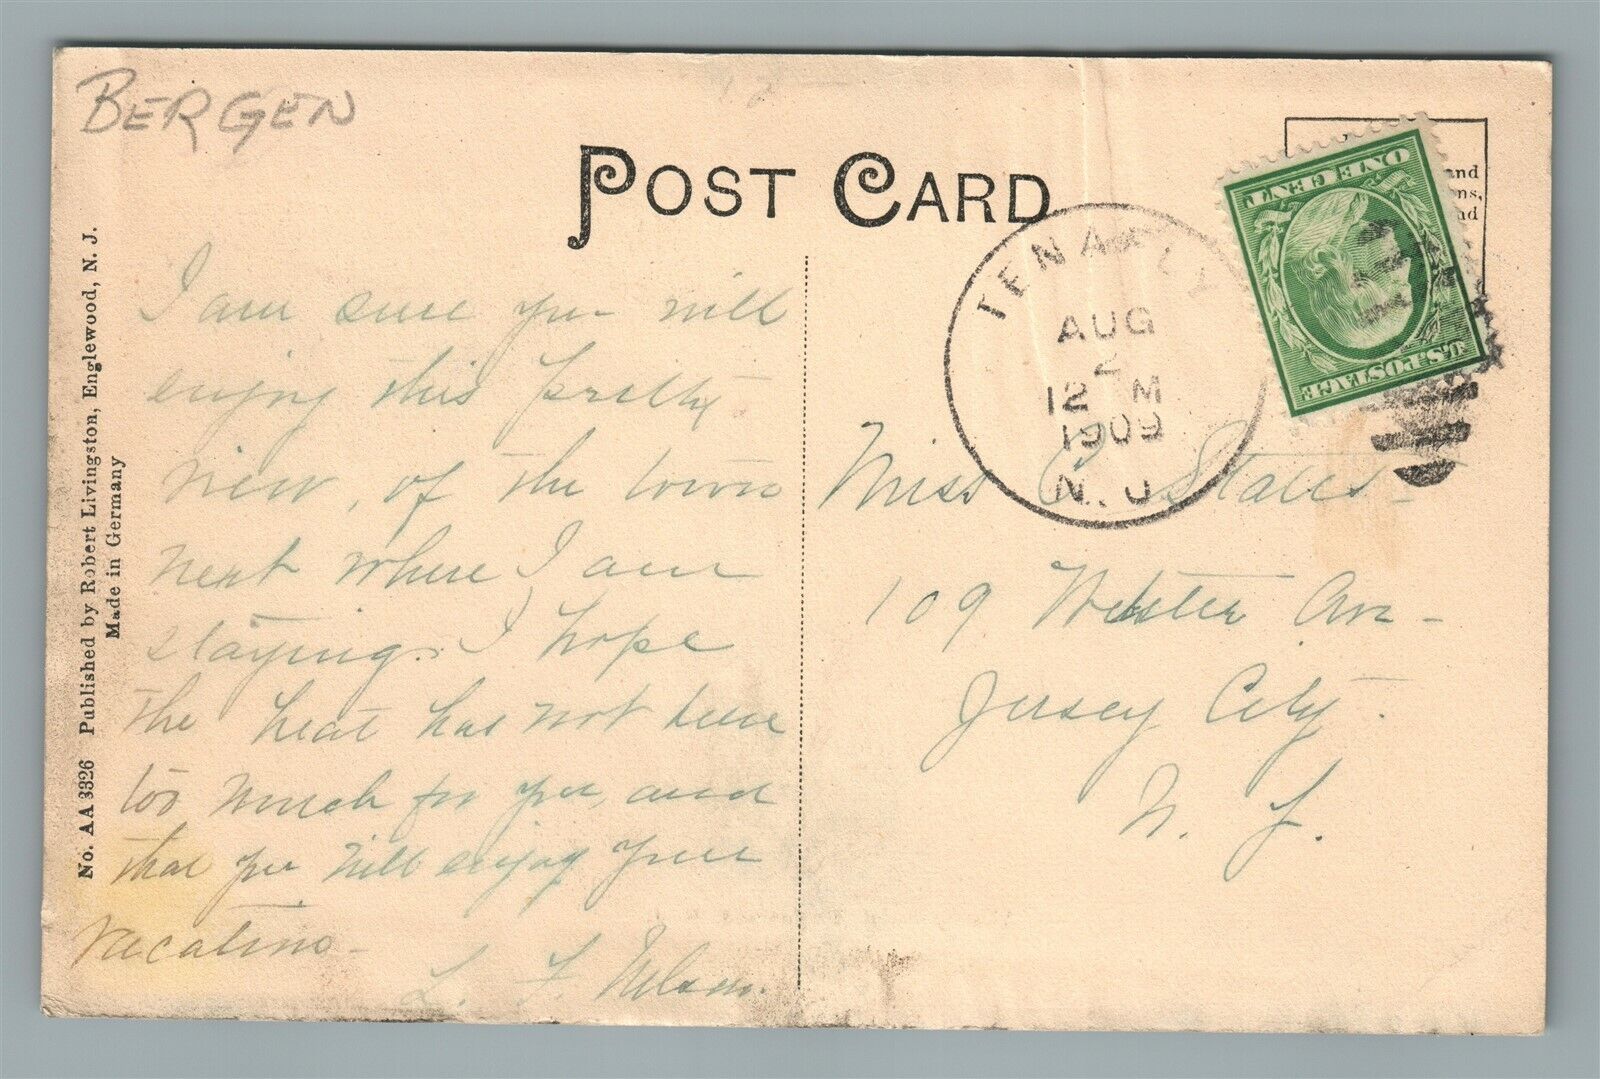 BERGEN
POST CARD
No. AA 3326 Published by Robert Livingston, Englewood, N. J.
Made in Germany
I am sure you will
enjoy this pretty
view, of the town
next where I am
staying. I hope
the heat has not been
too much for you, and
that you will enjoy your
vacation -
L. F. Nelson.
TENAFLY
AUG
2
12 M
1909
N. J.
ONE CENT
U.S. POSTAGE
and
ns,
ad
Miss C. States -
109 Webster Ave -
Jersey City.
N. J.